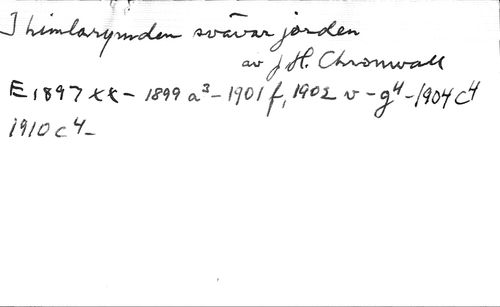 I himlarymden svävar jorden
av J. H. Chronwall
E 1897 xx - 1899 a3 - 1901 f, 1902 v - g4 - 1904 c4
1910 c4 -